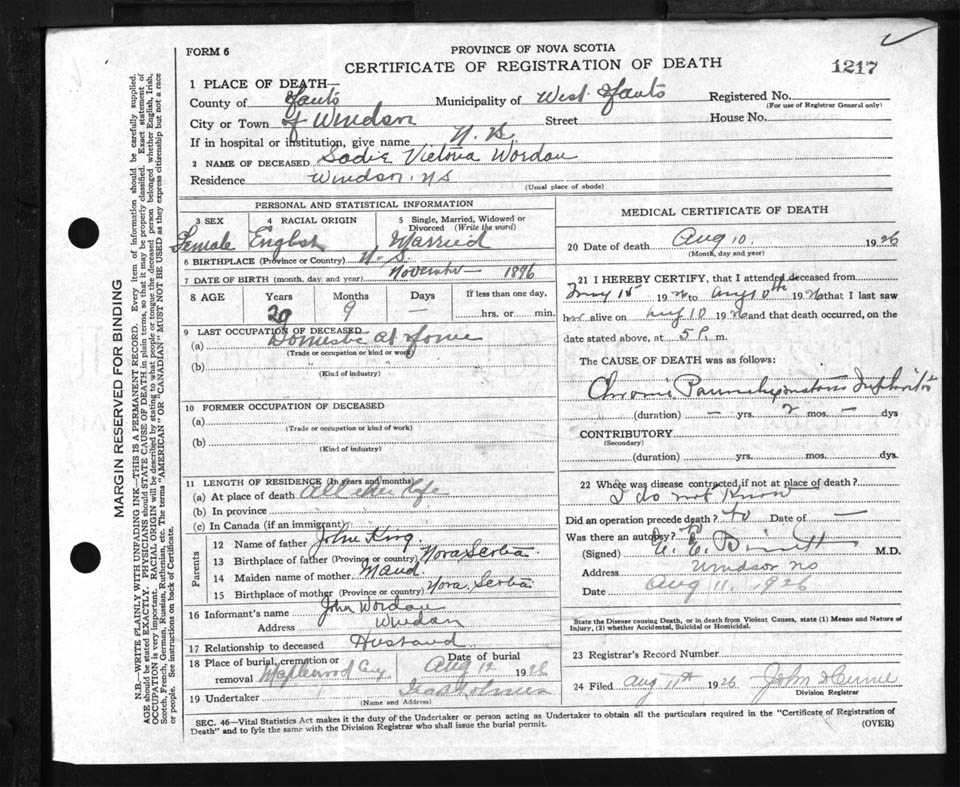 FORM 6
PROVINCE OF NOVA SCOTIA
CERTIFICATE OF REGISTRATION OF DEATH
1217
1 PLACE OF DEATH—
County of Hants Municipality of West Hants Registered No.
(For use of Registrar General only)
City or Town of Windsor Street House No.
If in hospital or institution, give name N. S.
2 NAME OF DECEASED Sadie Victoria
Residence Windsor. NS
(Usual place of abode)
PERSONAL AND STATISTICAL INFORMATION
3 SEX 4 RACIAL ORIGIN 5 Single, Married, Widowed or Divorced (Write the word)
Female English Married
6 BIRTHPLACE (Province or Country) N. S.
7 DATE OF BIRTH (month, day and year) November — 1896
8 AGE Years Months Days If less than one day,
29 9 — hrs. or min.
9 LAST OCCUPATION OF DECEASED
(a) Domestic at Home
(Trade or occupation or kind or work)
(b)
(Kind of industry)
10 FORMER OCCUPATION OF DECEASED
(a)
(Trade or occupation or kind of work)
(b)
(Kind of industry)
11 LENGTH OF RESIDENCE (In years and months)
(a) At place of death All her life
(b) In province
(c) In Canada (if an immigrant)
Parents
12 Name of father John King
13 Birthplace of father (Province or country) Nova Scotia
14 Maiden name of mother Maud
15 Birthplace of mother (Province or country) Nova Scotia
16 Informant's name John
Address Windsor
17 Relationship to deceased Husband
18 Place of burial, cremation or removal Maplewood Cey Date of burial Aug 12 1926
19 Undertaker
(Name and Address)
MEDICAL CERTIFICATE OF DEATH
20 Date of death Aug 10. 1926
(Month, day and year)
21 I HEREBY CERTIFY, that I attended deceased from
May 15 1926 to Aug 10th 1926 that I last saw
her alive on Aug 10 1926 and that death occurred, on the
date stated above, at 5 P. m.
The CAUSE OF DEATH was as follows:
Chronic Parenchymatous Nephritis
(duration) — yrs. 2 mos. — dys
CONTRIBUTORY
(Secondary)
(duration) yrs. mos. dys.
22 Where was disease contracted, if not at place of death?
I do not know
Did an operation precede death? no Date of —
Was there an autopsy? no
(Signed) M.D.
Address Windsor NS
Date Aug 11, 1926
State the Disease causing Death, or in death from Violent Causes, state (1) Means and Nature of Injury, (2) whether Accidental, Suicidal or Homicidal.
23 Registrar's Record Number
24 Filed Aug 11th 1926 John
Division Registrar
SEC. 46—Vital Statistics Act makes it the duty of the Undertaker or person acting as Undertaker to obtain all the particulars required in the "Certificate of Registration of
Death" and to fyle the same with the Division Registrar who shall issue the burial permit. (OVER)
MARGIN RESERVED FOR BINDING
N.B.—WRITE PLAINLY WITH UNFADING INK—THIS IS A PERMANENT RECORD. Every item of information should be carefully supplied.
AGE should be stated EXACTLY. PHYSICIANS should STATE CAUSE OF DEATH in plain terms, so that it may be properly classified. Exact statement of
OCCUPATION is very important. RACIAL ORIGIN will be described by stating to what people or tongue the deceased person belonged whether English, Irish,
Scotch, French, German, Russian, Ruthenian, etc. The terms "AMERICAN" OR "CANADIAN" MUST NOT BE USED as they express citizenship but not a race
or people. See instructions on back of Certificate.